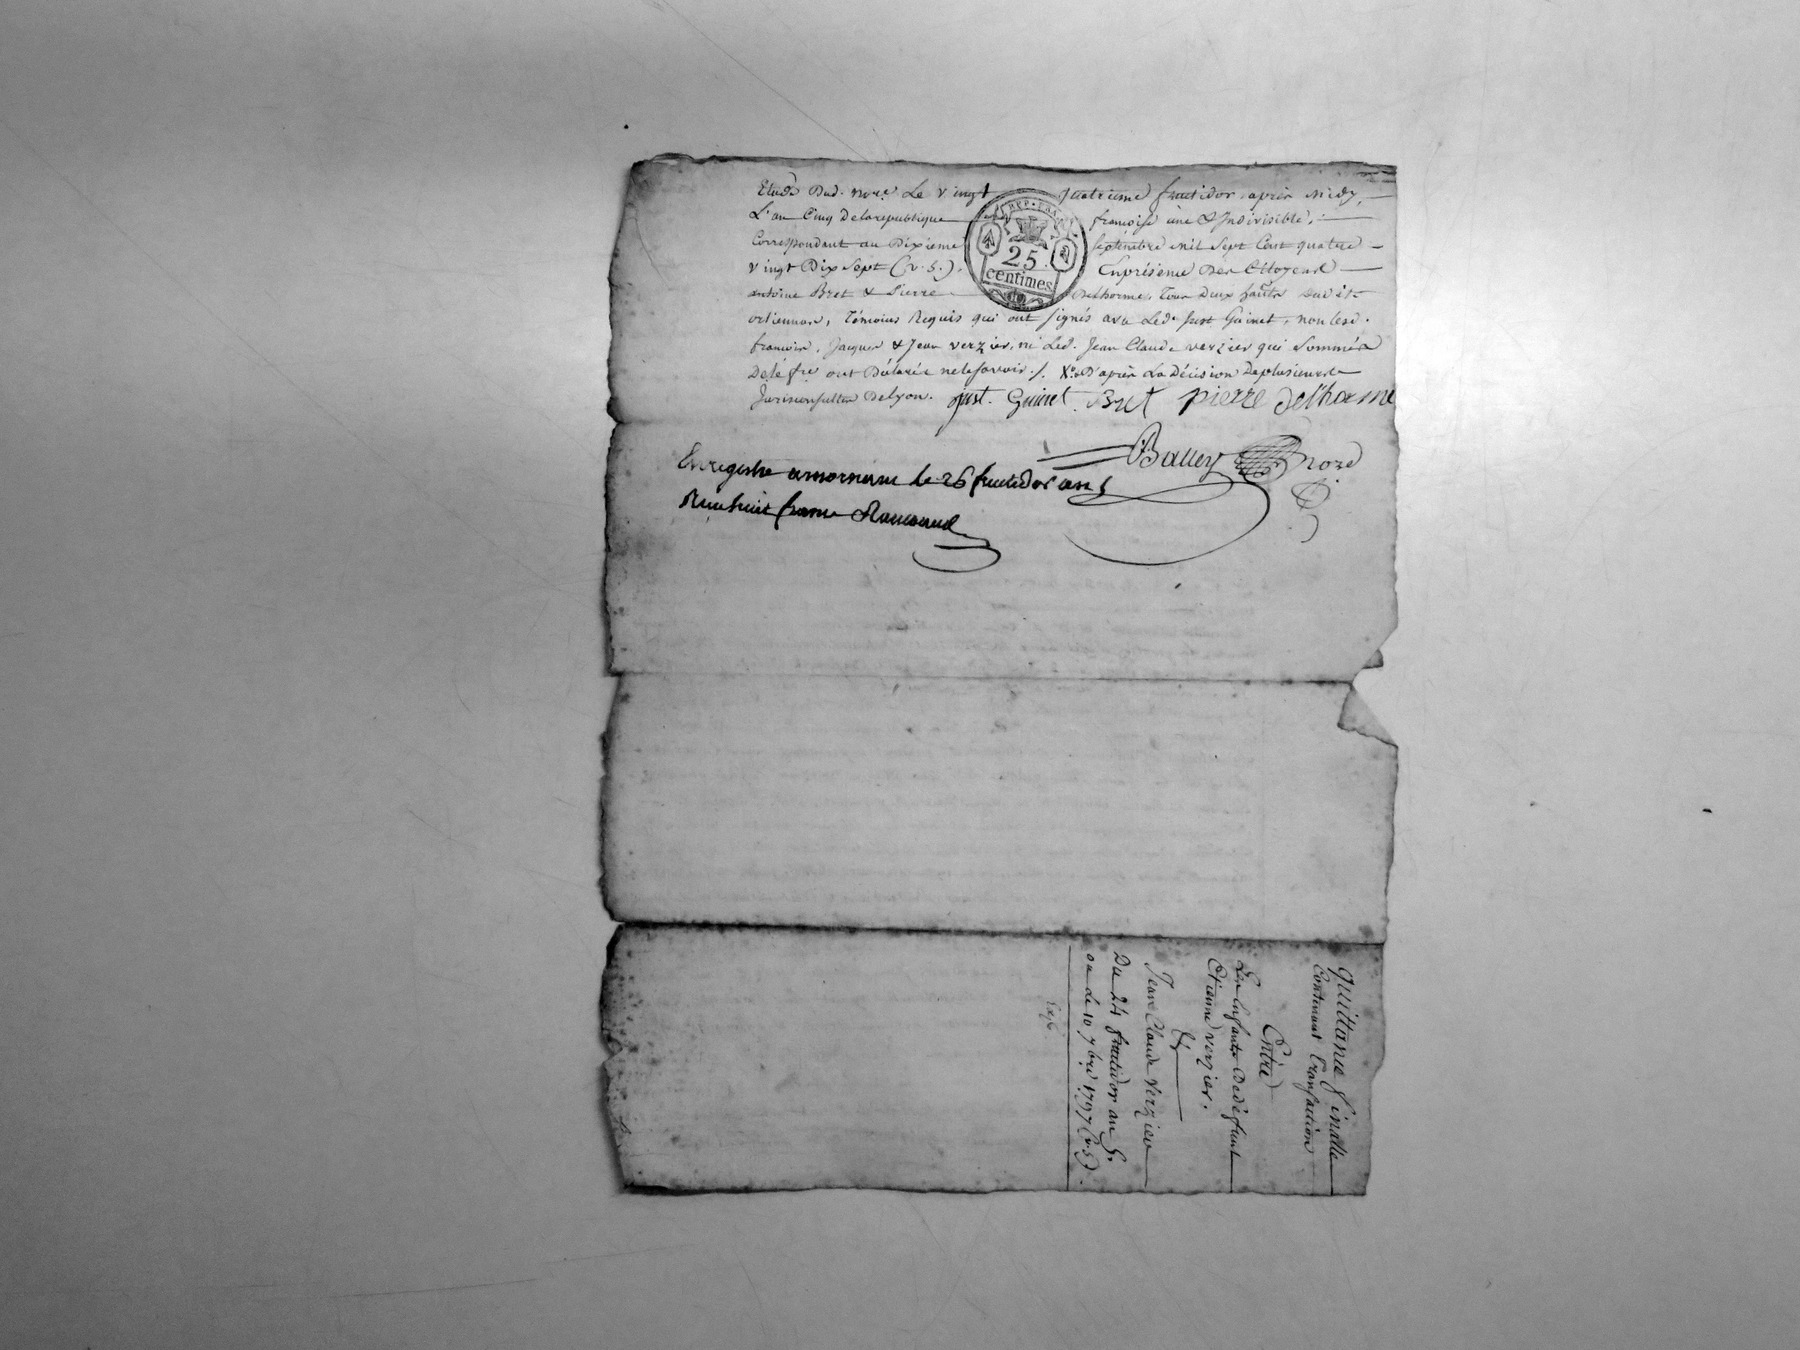 Etude Dud. nore. Le vingt quatrieme fructidor, après midy,
L'an Cinq De la republique francoise une & Indivisible,
Correspondant au Dixieme septembre mil Sept Cent quatre
vingt Dix Sept (v. s.). En présence Des Citoyens
antoine Bret & Pierre Delhorme, Tous Deux
Témoins Requis qui ont signés avec Led. just Guinet, non lesd.
francois, Jacques & Jean verzier, ni Led. Jean Claude verzier qui sommés
De le fre ont Déclarés ne le savoir ./. D'après La Décision De plusieurs
Jurisconsultes De lyon. just. Guinet. Bret pierre delhorme
REP. FRA.
25
centimes
Balley nore
Enregistre a mornant le 26 fructidor an 5
Recu huit francs
quittance finalle
Contenant Transaction
Entre
Les Enfants De défunt
Etienne verzier.
&
Jean Claude Verzier
Du 24 fructidor an 5.
ou le 10 7bre 1797 (v. s.).
Exp.